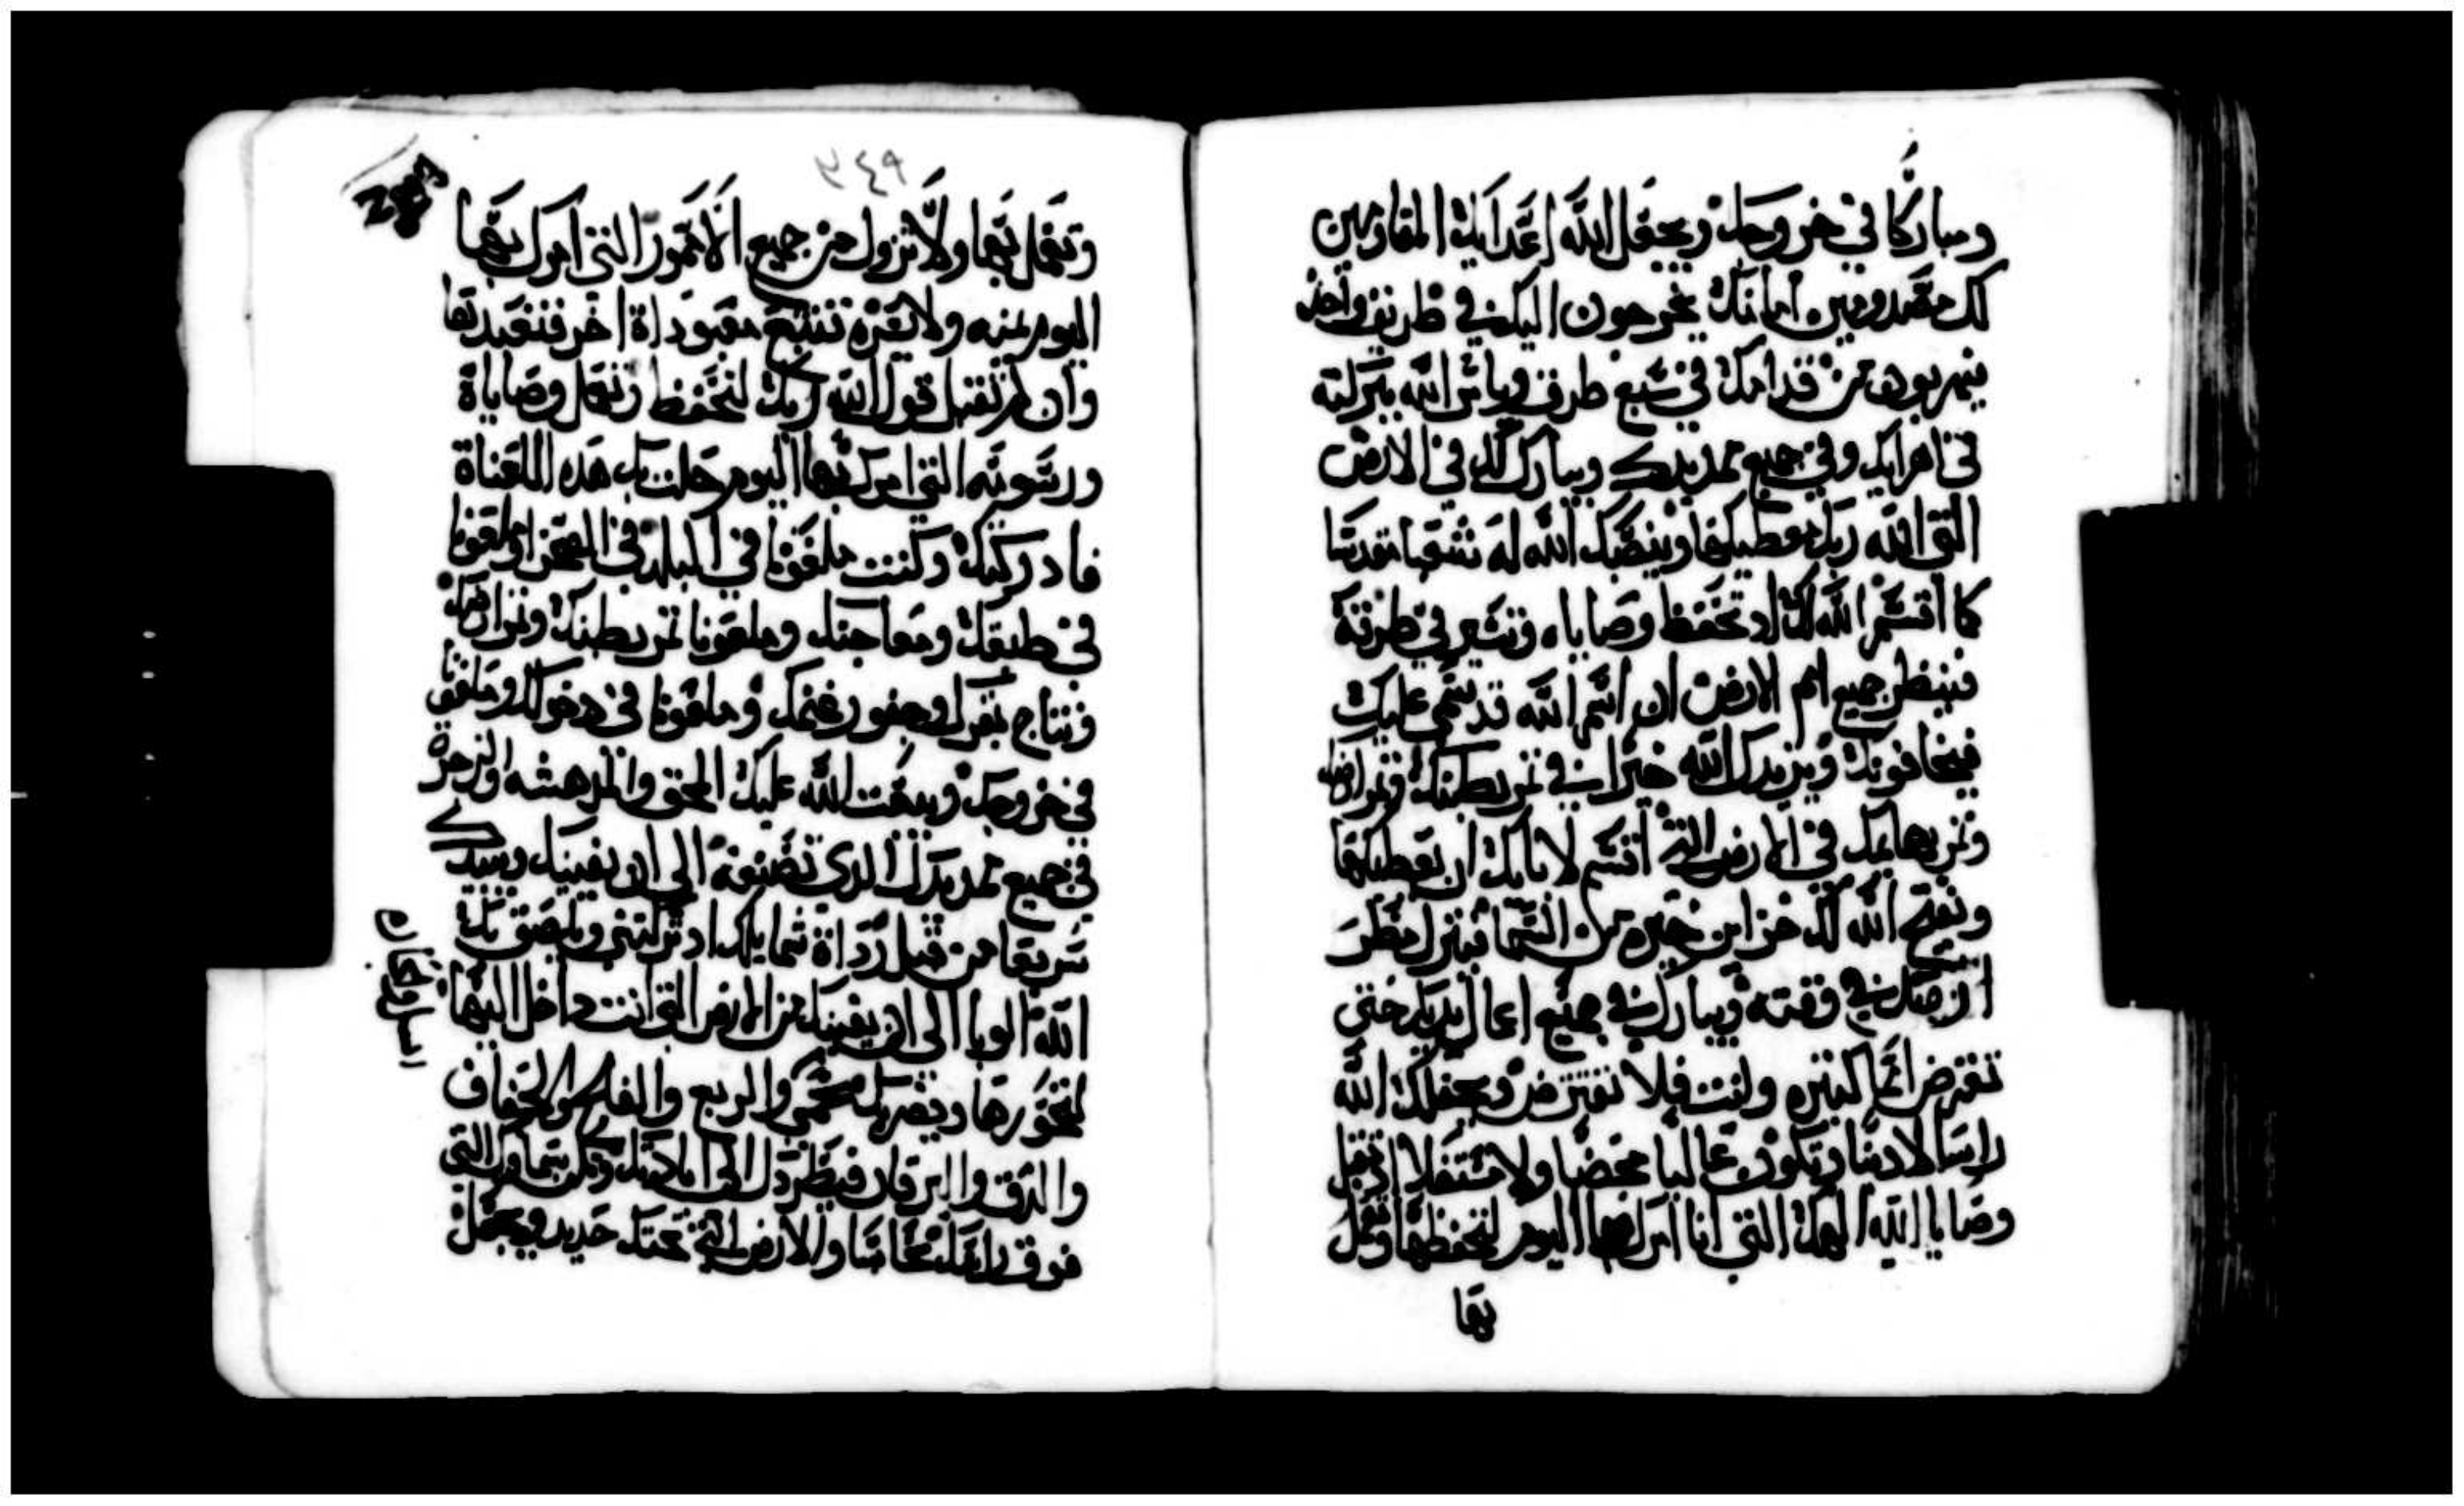 ومباركا في خروجك ويجعل الله اعدايك المقاومين
لك مصدومين امامك يخرجون اليك في طريق واحد
يهربون من قدامك في سبع طرق ويامر الله ببركته
في اهرايك وفي جميع مد يدك ويبارك لك في الارض
التي الله ربك معطيكها وينصبك الله له شعبا مقدسا
كما اقسم الله لك اد تحفظ وصاياه وتسير في طرقه
فينظر جميع امم الارض ان اسم الله قد سمي عليك
فيخافونك ويزيدك الله خيرا في ثمر بطنك وثمر ارضك
وثمر بهايمك في الارض التي اقسم لابايك ان يعطيكها
ويفتح الله لك خزاين خيره من السما فينزل مطر
ارضك في وقته ويبارك في جميع اعمال يديك حتى
تقرض امما كثيره وانت فلا تقترض ويجعلك الله
راسا لا دنبا وتكون عاليا محضا ولا مستفلا اد تقبل
وصايا الله الهك التي انا امرك بها اليوم لتحفظها وتعمل
بها
٣٤٩
وتعمل بها ولا تزول من جميع الامور التي امرك بها
اليوم يمنه ولا يسره تتبع معبوداة اخر فتعبدها
وان لم تقبل قول الله ربك لتحفظ وتعمل وصاياة
ورسومه التي امرك بها اليوم حلت بك هده اللعناة
فادركتك وكنت ملعونا في البلد وفي الصحرا وملعونا
في طبقك ومعاجنك وملعونا ثمر بطنك وثمر ارضك
ونتاج بقرك وجفور غنمك وملعونا في دخولك وملعونا
في خروجك ويبعت الله عليك المحق والدهشه والزجرة
في جميع مد يدك الدي تصنعه الى ان يفنيك ويبيدك
سريعا من قبل رداة شمايلك اد تركتني ويلصق بك
الله الوبا الى ان يفنيك من الارض التي انت داخل اليها
لتحوزها ويضربك والربع
والدق واليرقان الى ابادتك وتكن سماوك التي
فوق راسك نحاسا والارض التي تحتك حديد ويجعل